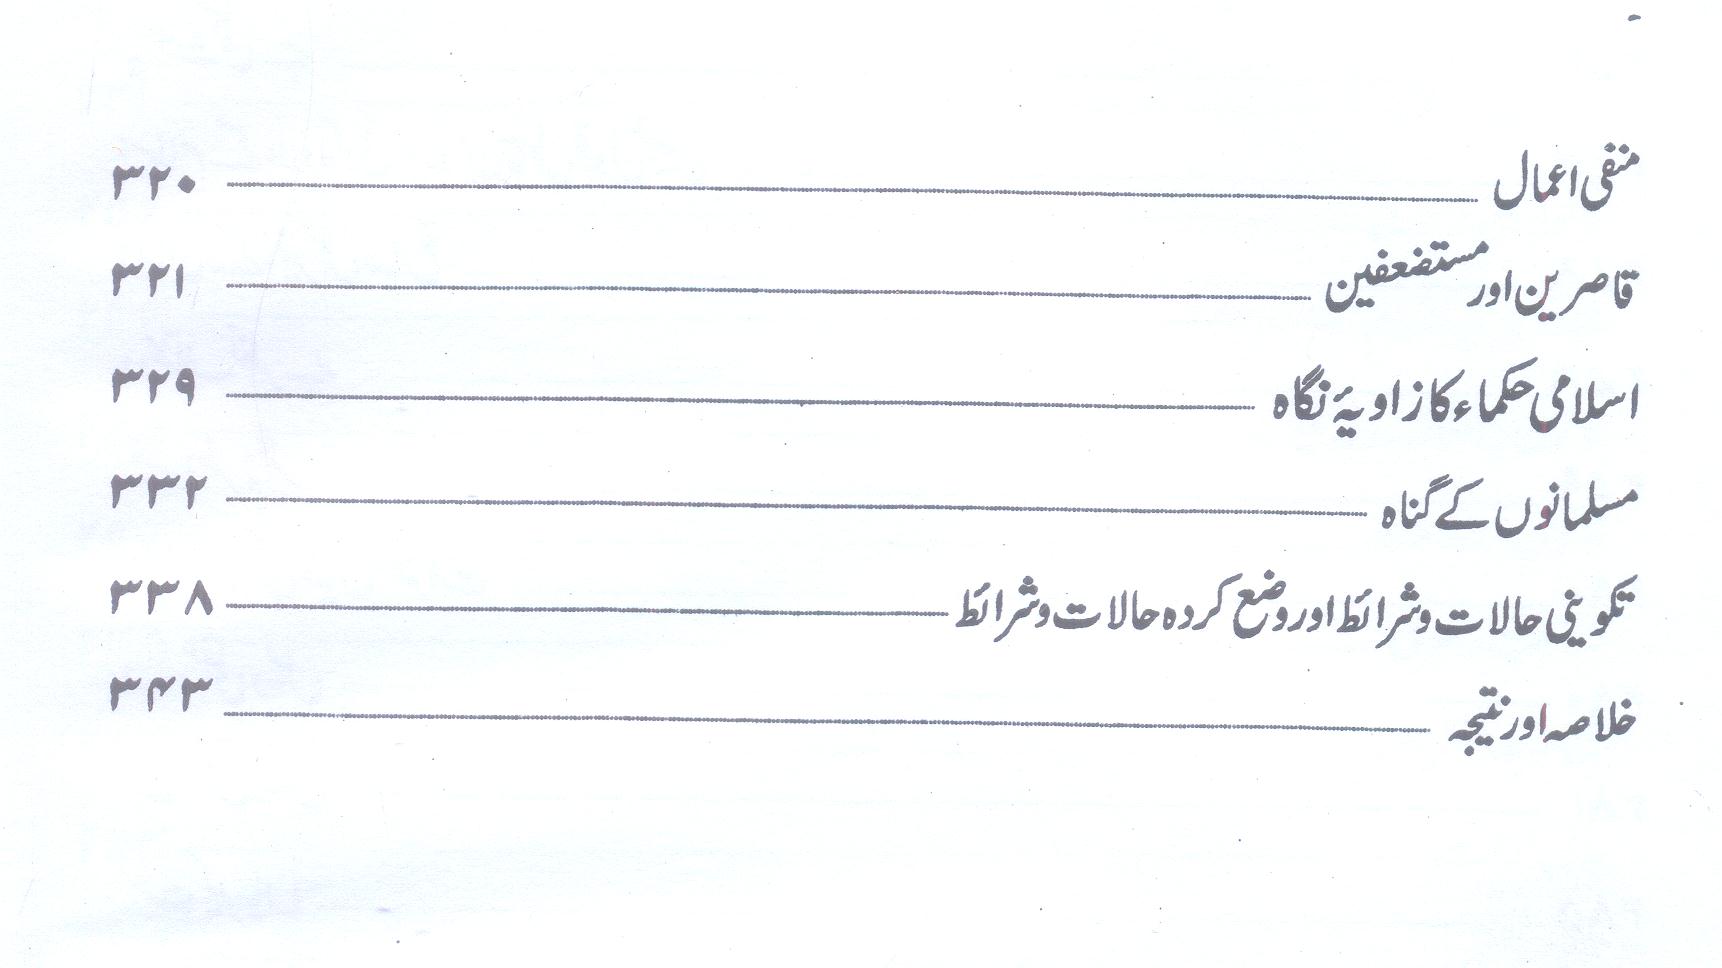 منفی اعمال ۳۲۰
قاصرین اور مستضعفین ۳۲۱
اسلامی حکماء کا زاویۂ نگاہ ۳۲۹
مسلمانوں کے گناہ ۳۳۲
تکوینی حالات و شرائط اور وضع کردہ حالات و شرائط ۳۳۸
خلاصہ اور نتیجہ ۳۴۳